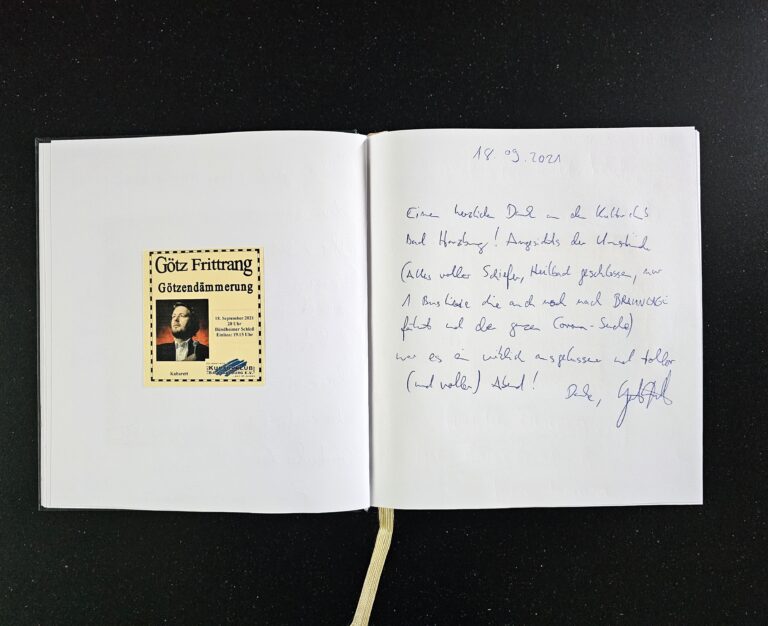 Götz Frittrang
Götzendämmerung
18. September 2021
20 Uhr
Bündheimer Schloß
Einlass: 19.15 Uhr
Kabarett
KULTURCLUB
18 09.2021
Einen herzlichen Dank an den Kulturclub
Bad Harzburg! Angesichts der Umstände
(Alles voller Schiefer, Heilbad geschlossen, nur
1 Buslinie die auch noch nach BRAUNLAGE
führt und der ganzen Corona-Seuche)
war es ein wirklich ausgelassener und toller
(und voller) Abend!
Danke,